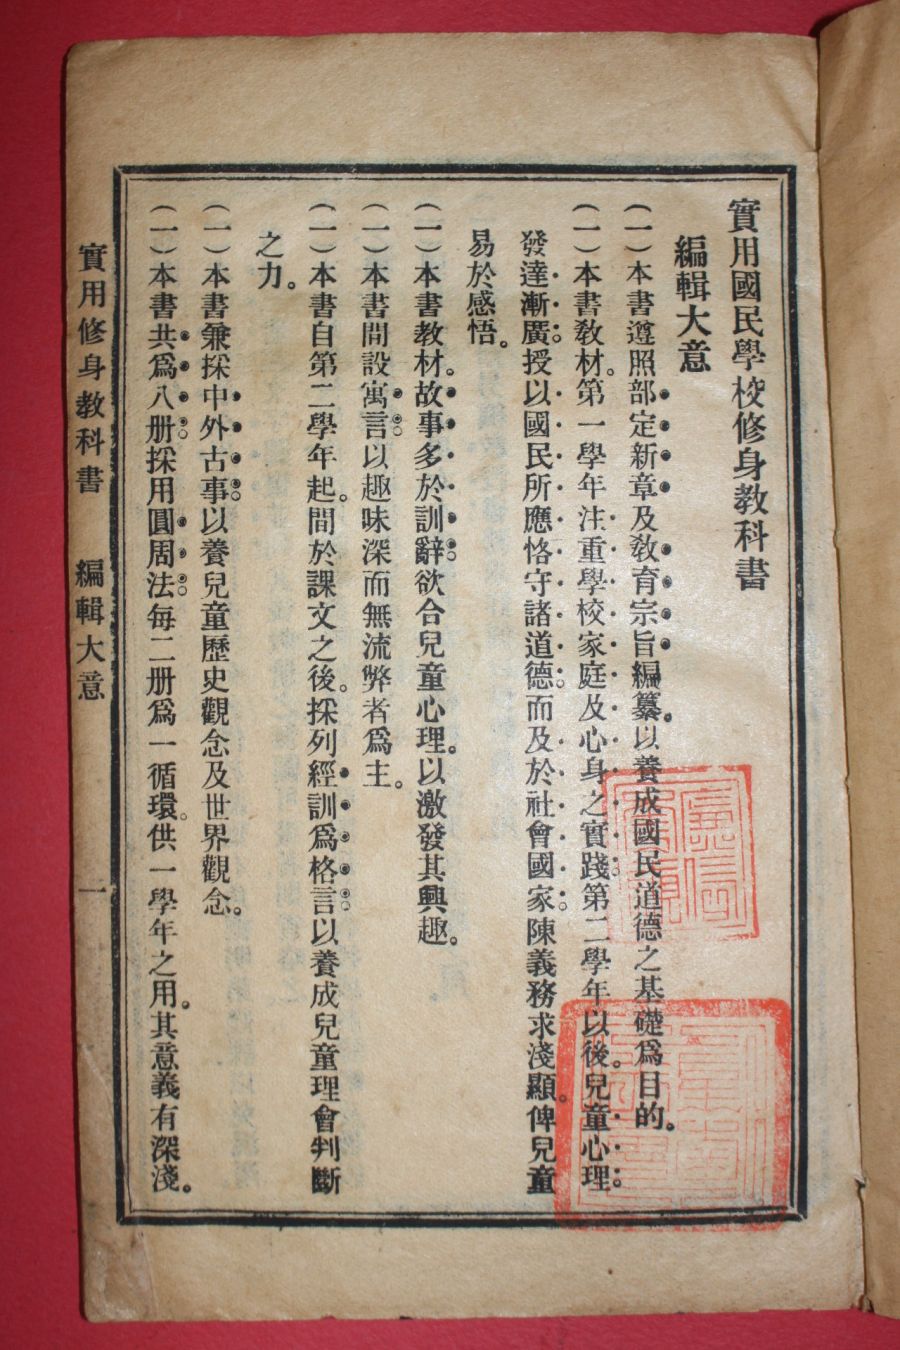 實用國民學校修身教科書
編輯大意
(一)本書遵照部定新章及教育宗旨編纂。以養成國民道德之基礎爲目的。
(一)本書教材。第一學年注重學校家庭及心身之實踐。第二學年以後。兒童心理
發達漸廣。授以國民所應恪守諸道德。而及於社會國家。陳義務求淺顯。俾兒童
易於感悟。
(一)本書教材。故事多於訓辭。欲合兒童心理。以激發其興趣。
(一)本書間設寓言。以趣味深而無流弊者爲主。
(一)本書自第二學年起。間於課文之後。採列經訓爲格言。以養成兒童理會判斷
之力。
(一)本書兼採中外古事。以養兒童歷史觀念及世界觀念。
(一)本書共爲八册。採用圓周法。每二册爲一循環。供一學年之用。其意義有深淺。
實用修身教科書 編輯大意 一